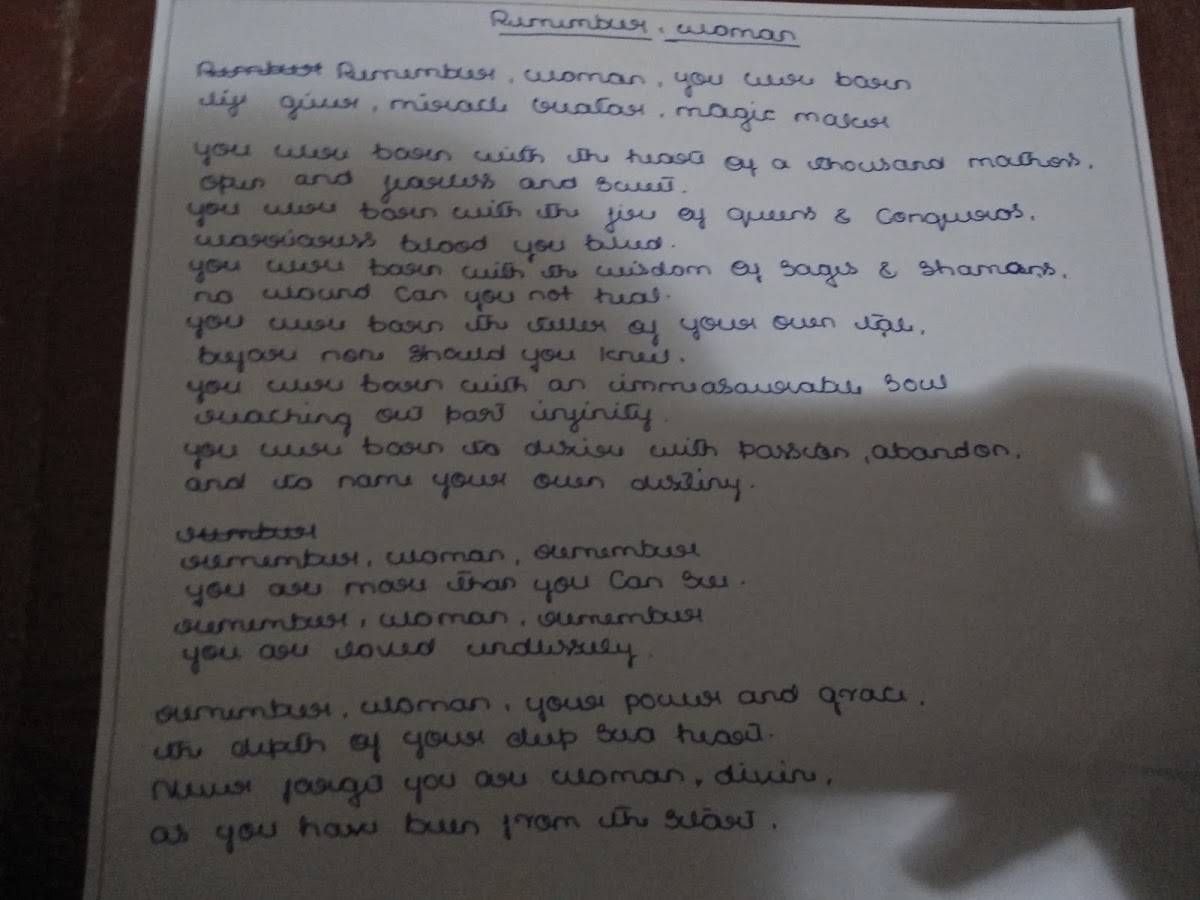 Remember, woman
Remember Remember, woman, you were born
life giver, miracle creator, magic maker
you were born with the heart of a thousand mothers.
open and fearless and sweet.
you were born with the fire of queens & conquerors.
warrioress blood you bleed.
you were born with the wisdom of sages & shamans.
no wound can you not heal.
you were born the teller of your own tale,
before none should you kneel.
you were born with an immeasurable soul
reaching out past infinity.
you were born to desire with passion, abandon.
and to name your own destiny.
remember
remember, woman, remember
you are more than you can see.
remember, woman, remember
you are loved endlessly.
remember, woman, your power and grace.
the depth of your deep sea heart.
Never forget you are woman, divine,
as you have been from the start.